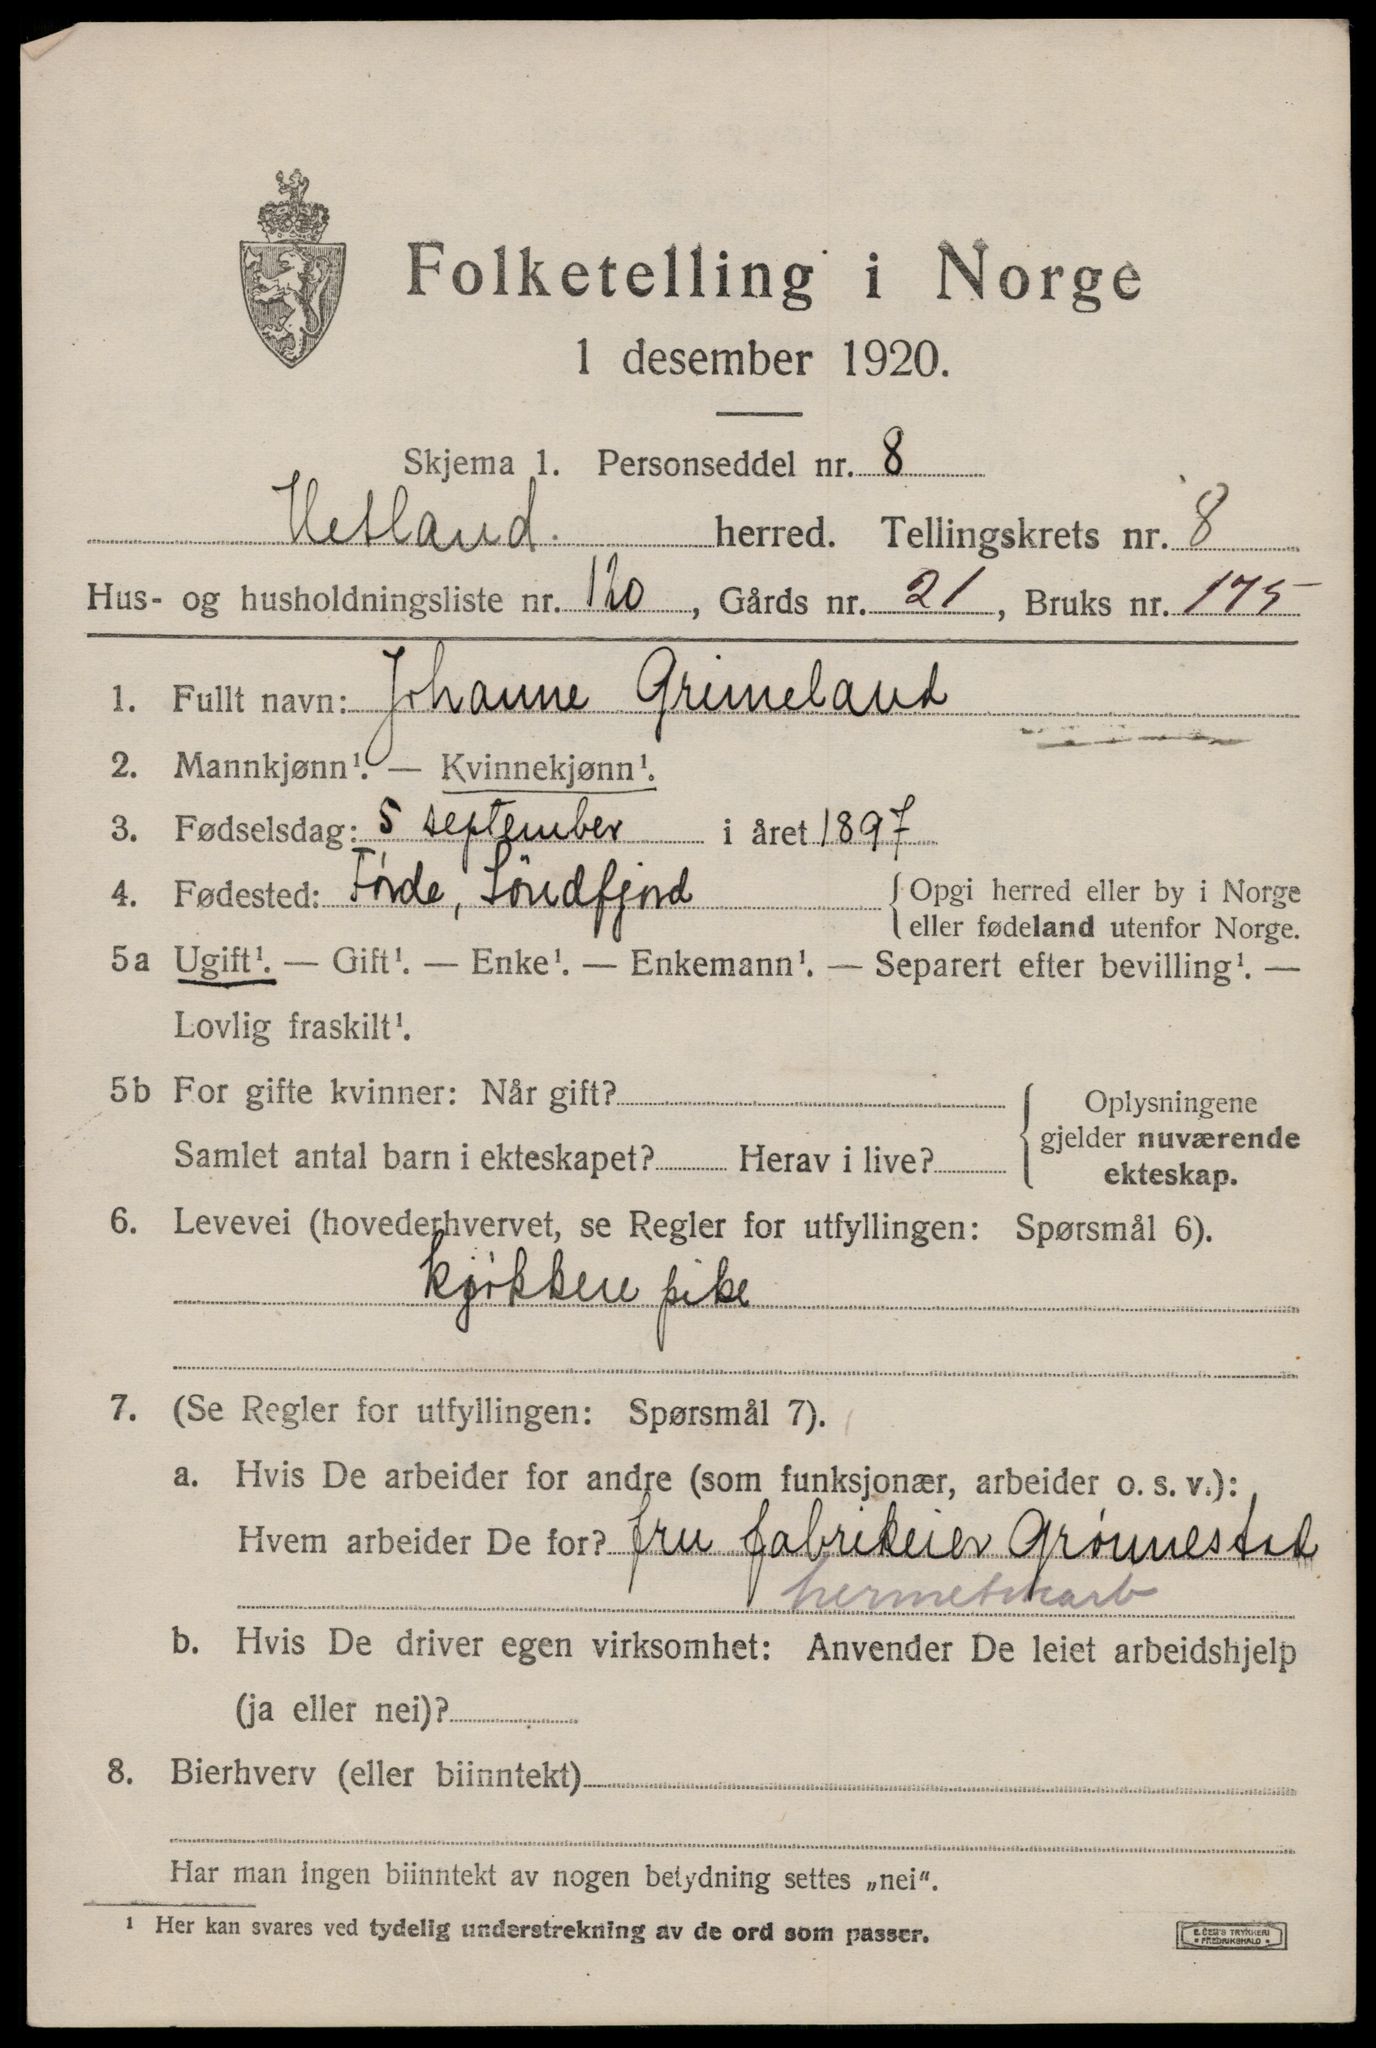 Folketelling i Norge
1 desember 1920.
Skjema 1. Personseddel nr. 8
Hetland. herred. Tellingskrets nr. 8
Hus- og husholdningsliste nr. 120, Gårds nr. 21, Bruks nr. 175
1. Fullt navn: Johanne Grimeland
2. Mannkjønn¹. — Kvinnekjønn¹.
3. Fødselsdag: 5 september i året 1897
4. Fødested: Førde, Söndfjord {Opgi herred eller by i Norge
eller fødeland utenfor Norge.
5a Ugift¹. — Gift¹. — Enke¹. — Enkemann¹. — Separert efter bevilling¹. —
Lovlig fraskilt¹.
5b For gifte kvinner: Når gift?
Samlet antal barn i ekteskapet? Herav i live?
Oplysningene
gjelder nuværende
ekteskap.
6. Levevei (hovederhvervet, se Regler for utfyllingen: Spørsmål 6).
kjøkken pike
7. (Se Regler for utfyllingen: Spørsmål 7).
a. Hvis De arbeider for andre (som funksjonær, arbeider o. s. v.):
Hvem arbeider De for? fru fabrikeier Grønnestad
hermetikarb
b. Hvis De driver egen virksomhet: Anvender De leiet arbeidshjelp
(ja eller nei)?
8. Bierhverv (eller biinntekt)
Har man ingen biinntekt av nogen betydning settes „nei".
¹ Her kan svares ved tydelig understrekning av de ord som passer.
E. SEM'S TRYKKERI
FREDRIKSHALD